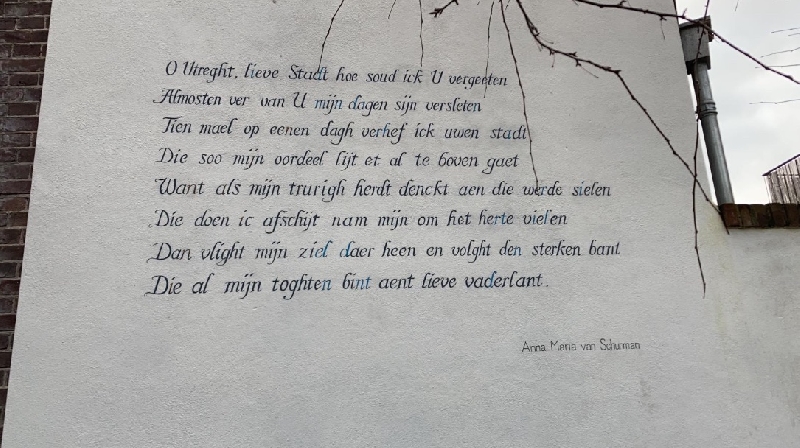 O Utreght, lieve Stadt hoe soud ick U vergeeten
Almosten ver van U mijn dagen sijn versleten
Tien mael op eenen dagh verhef ick uwen stadt
Die soo mijn oordeel lijt et al te boven gaet
Want als mijn trurigh herdt denckt aen die werde sielen
Die doen ic afschijt nam mijn om het herte vielen
Dan vlight mijn ziel daer heen en volght den sterken bant
Die al mijn toghten bint aent lieve vaderlant.
Anna Maria van Schurman